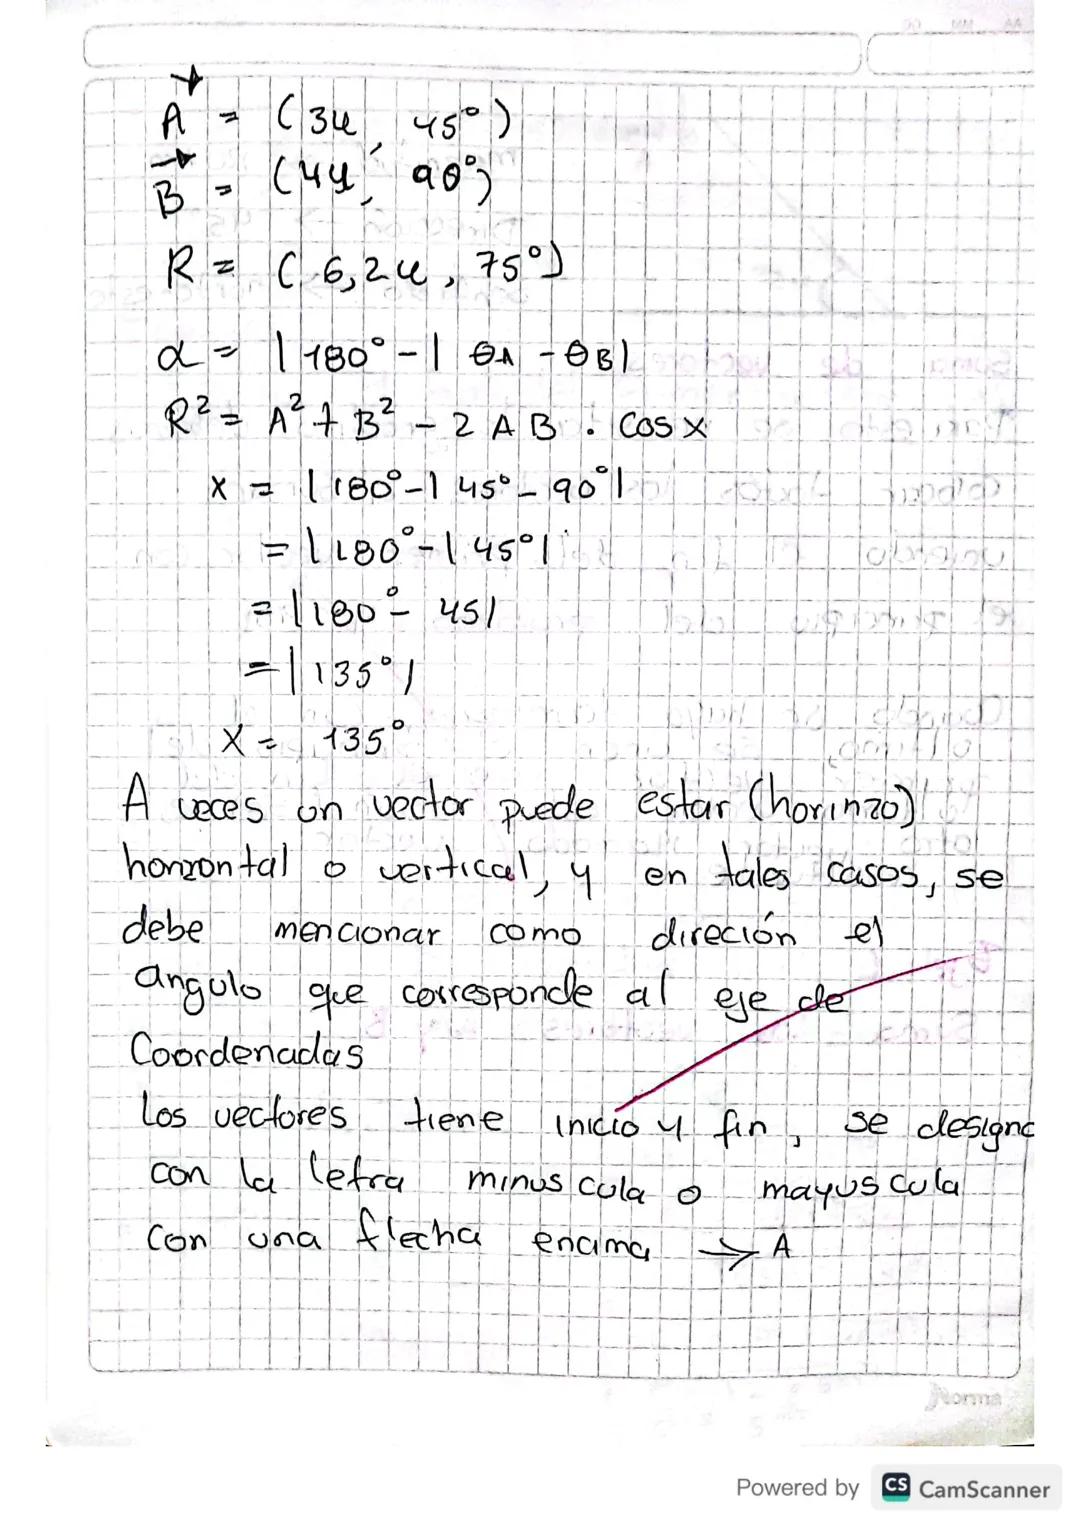 A⃗ = (3u, 45°)
B⃗ = (4u, 90°)
R = (6,2u, 75°)
α = |180° - | θA - θB|
R² = A² + B² - 2AB . cos x
x = |180° - | 45° - 90°|
= |180° - | 45°|
= |180° - 45|
= |135°|
x = 135°
A veces un vector puede estar (horinzo)
horizontal o vertical, y en tales casos, se
debe mencionar como direción el
angulo que corresponde al eje de
Coordenadas
Los vectores tiene inicio y fin, se designa
con la letra minuscula o mayuscula
con una flecha encima → A
Norma
Powered by CS CamScanner